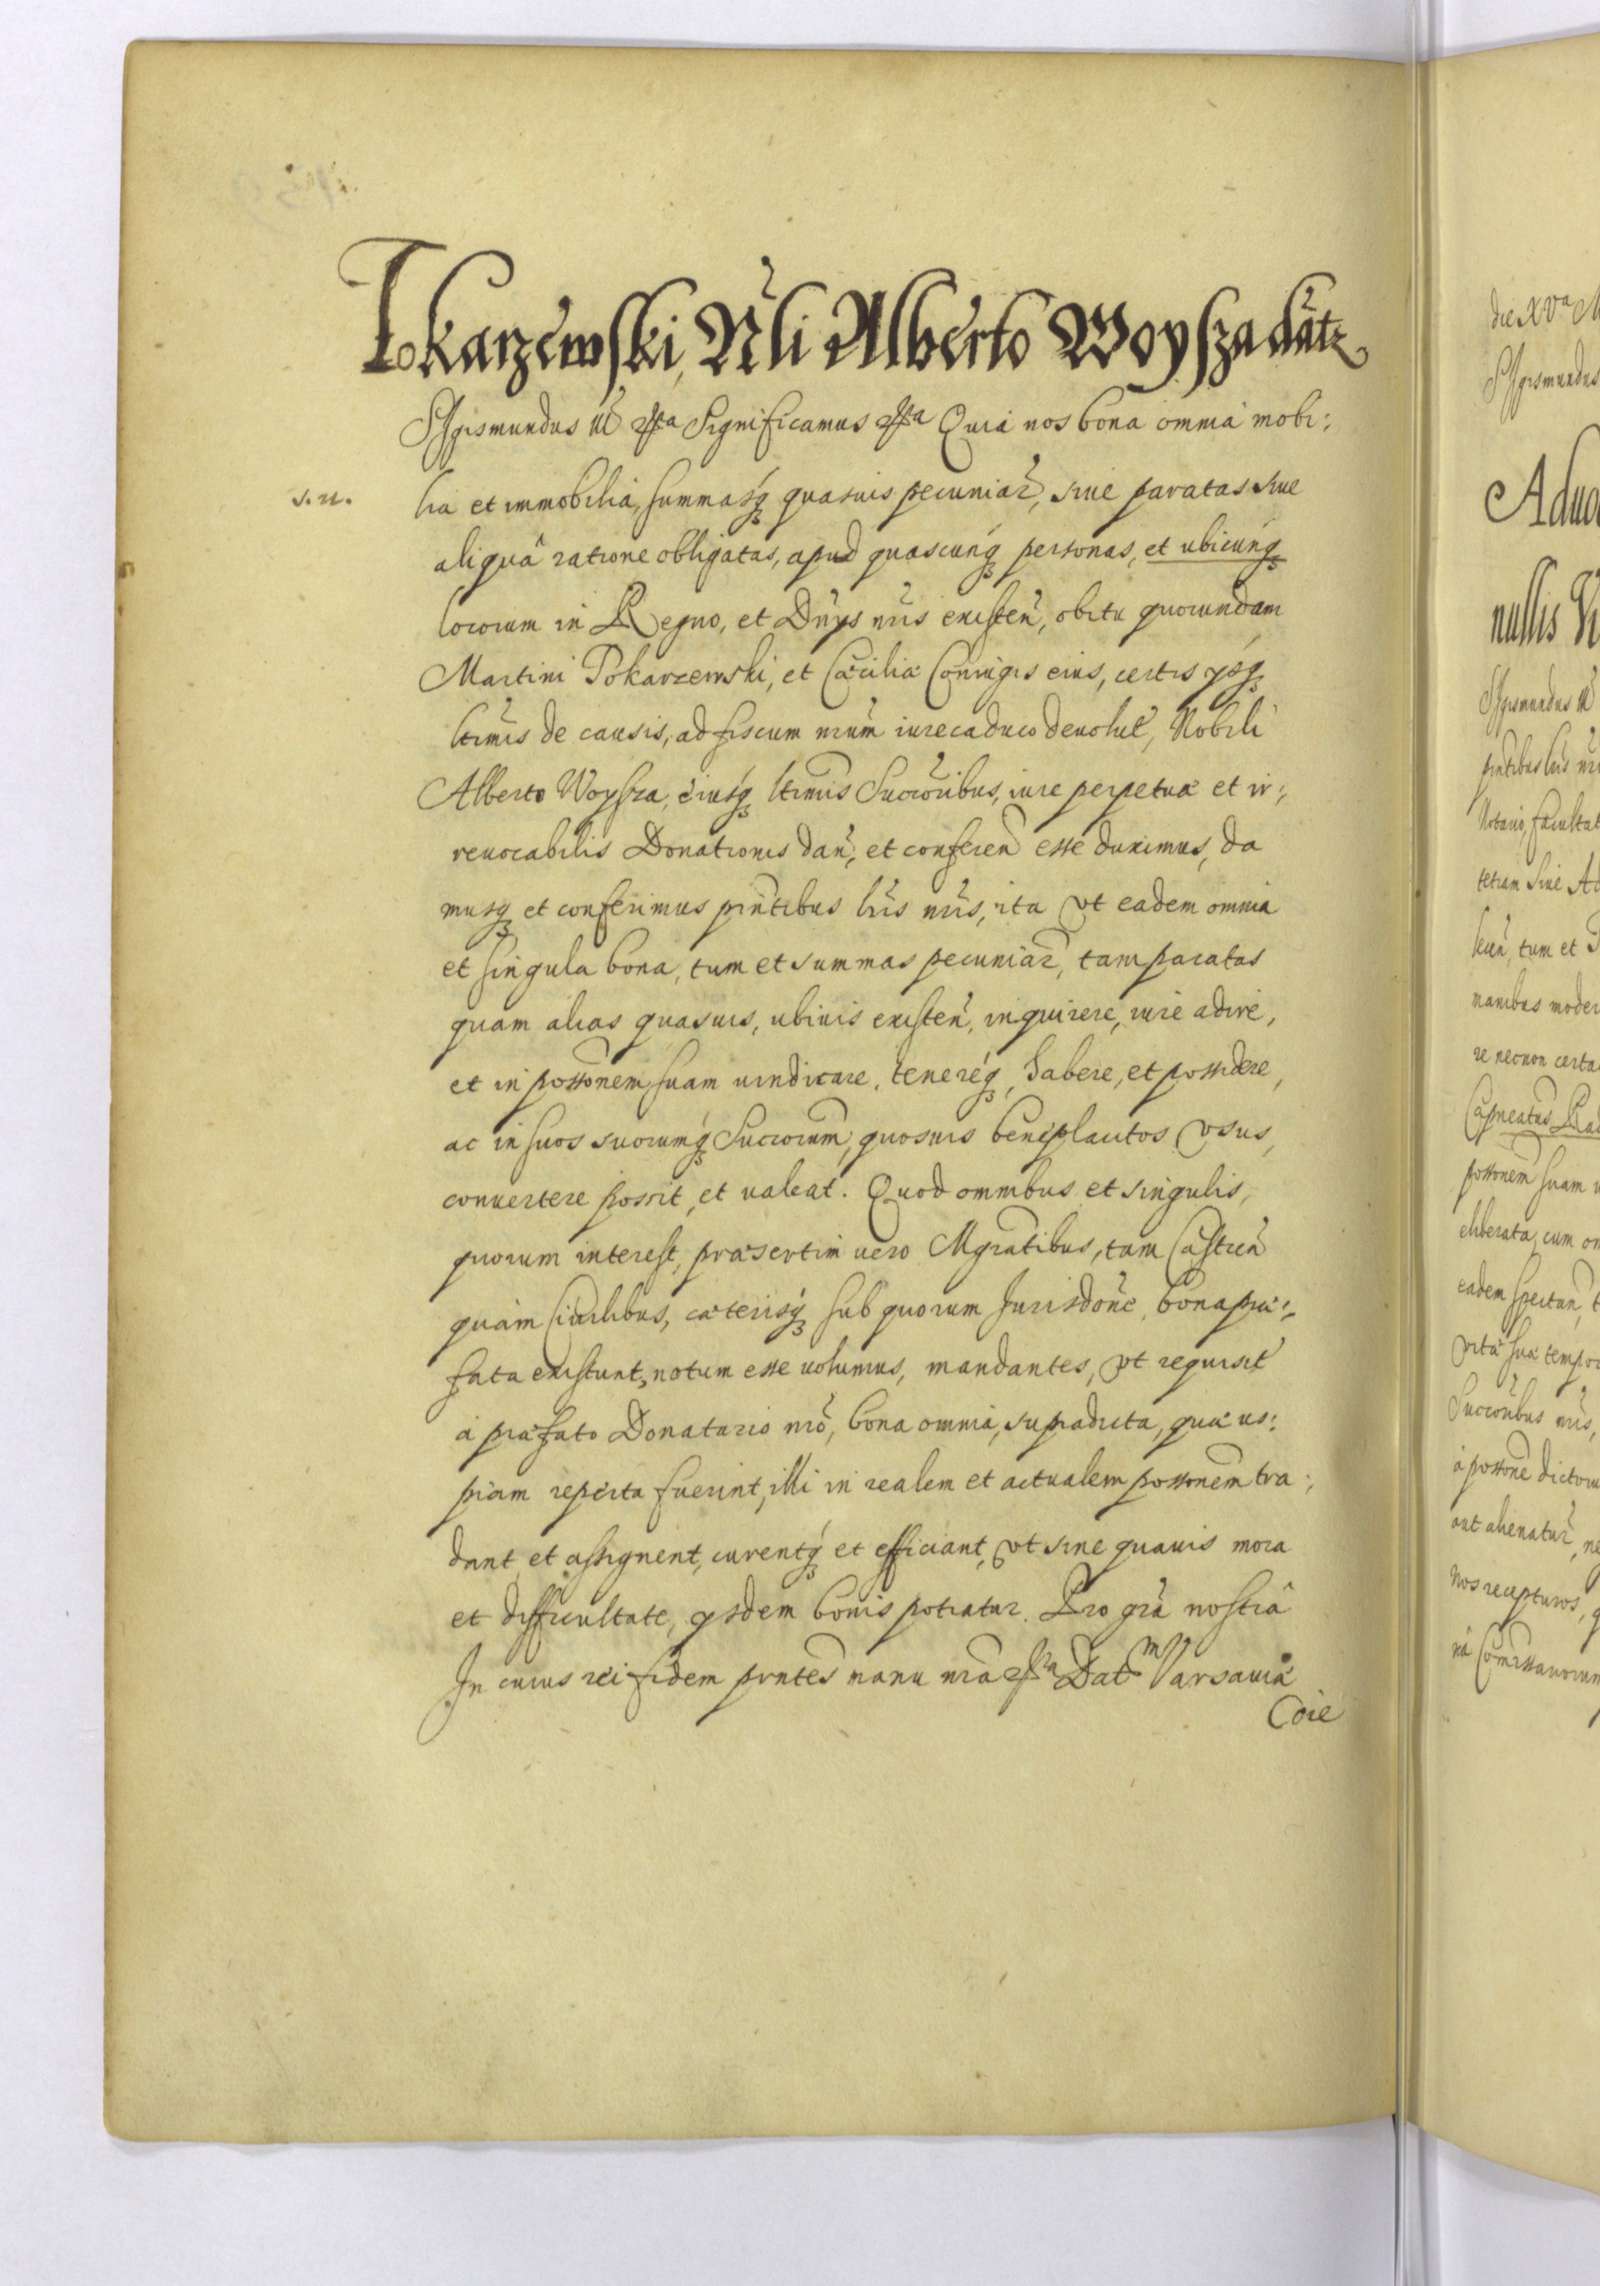 Tokarzewski, Nli Alberto Woysza datr
Sigismundus III etca Significamus etca Quia nos bona omnia mobi:
s. n.
lia et immobilia, summasq quasuis pecuniar, siue paratas siue
aliquâ ratione obligatas, apud quascunq personas, et ubicunq
locorum in Regno, et Dnys nris existen, obitu quorundam
Martini Tokarzewski, et Cæciliæ Coniugis eius, certis ysq
ltimis de causis, ad fiscum nrum iure caduco deuolut, Nobili
Alberto Woysza, eiusq ltimis Succoribus, iure perpetuæ et ir:
reuocabilis Donationis dan, et conferen esse duximus, da
musq et conferimus pntibus lris nris, ita vt eadem omnia
et singula bona, tum et summas pecuniar, tam paratas
quam alias quasuis, ubiuis existen, inquirere, iure adire,
et in possonem suam uindicare, tenereq, habere, et possidere,
ac in suos suorumq Succorum, quosuis beneplacitos vsus,
conuertere possit, et ualeat. Quod omnibus et singulis,
quorum interest, præsertim uero Mgratibus, tam Castren
quàm Ciuilibus, cæterisq sub quorum Jurisdone, bona præ:
fata existunt, notum esse uolumus, mandantes, vt requisit
à præfato Donatario nro, bona omnia, supradicta, quæ us:
piam reperta fuerint, illi in realem et actualem possonem tra:
dant et assignent, curentq et efficiant, vt sine quauis mora
et difficultate, ysdem bonis potiatur. Pro gra nostrâ
In cuius rei fidem pntes manu nra etca Dat Varsauiæ
Coie
die XVa M
Sigismundus
Aduo
nullis Vi
Sigismundus III
pntibus lris nri
Notario, facultat
tetiam siue Ad
manibus moder
re necnon certa
possonem suam u
eliberata, cum om
eadem spectan, t
vitæ suæ tempor
Succoribus nris,
à possone dictoru
aut alienatur, ne
Nos recepturos, q